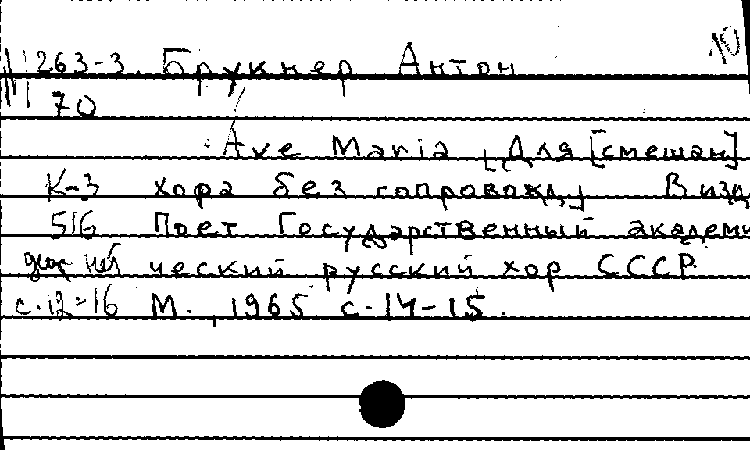 10
263-3. Брукнер Антон
70
Ave Maria [Для [смешан]
К-3 хора без сопровожд.] В изд
516 Поет Государственный академи
ческий русский хор СССР
с.12-16 М., 1965 с.14-15.